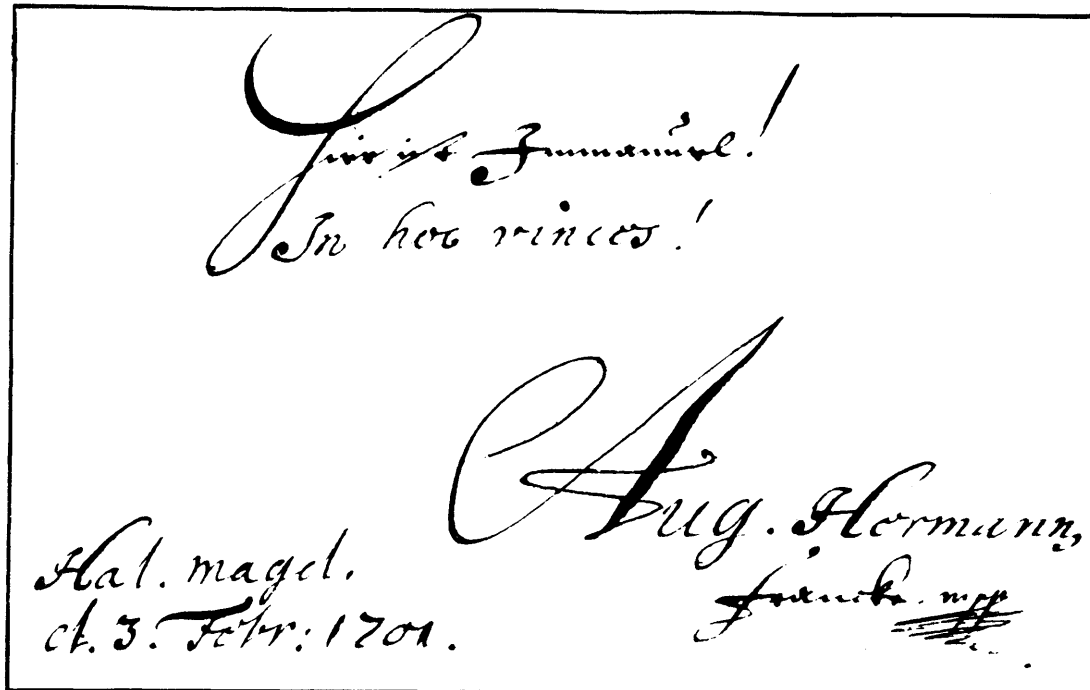 Hier ist Immanuel!
In hoc vinces!
Aug. Hermann,
Francke. mpp
Hal. magd.
d. 3. Febr: 1701.